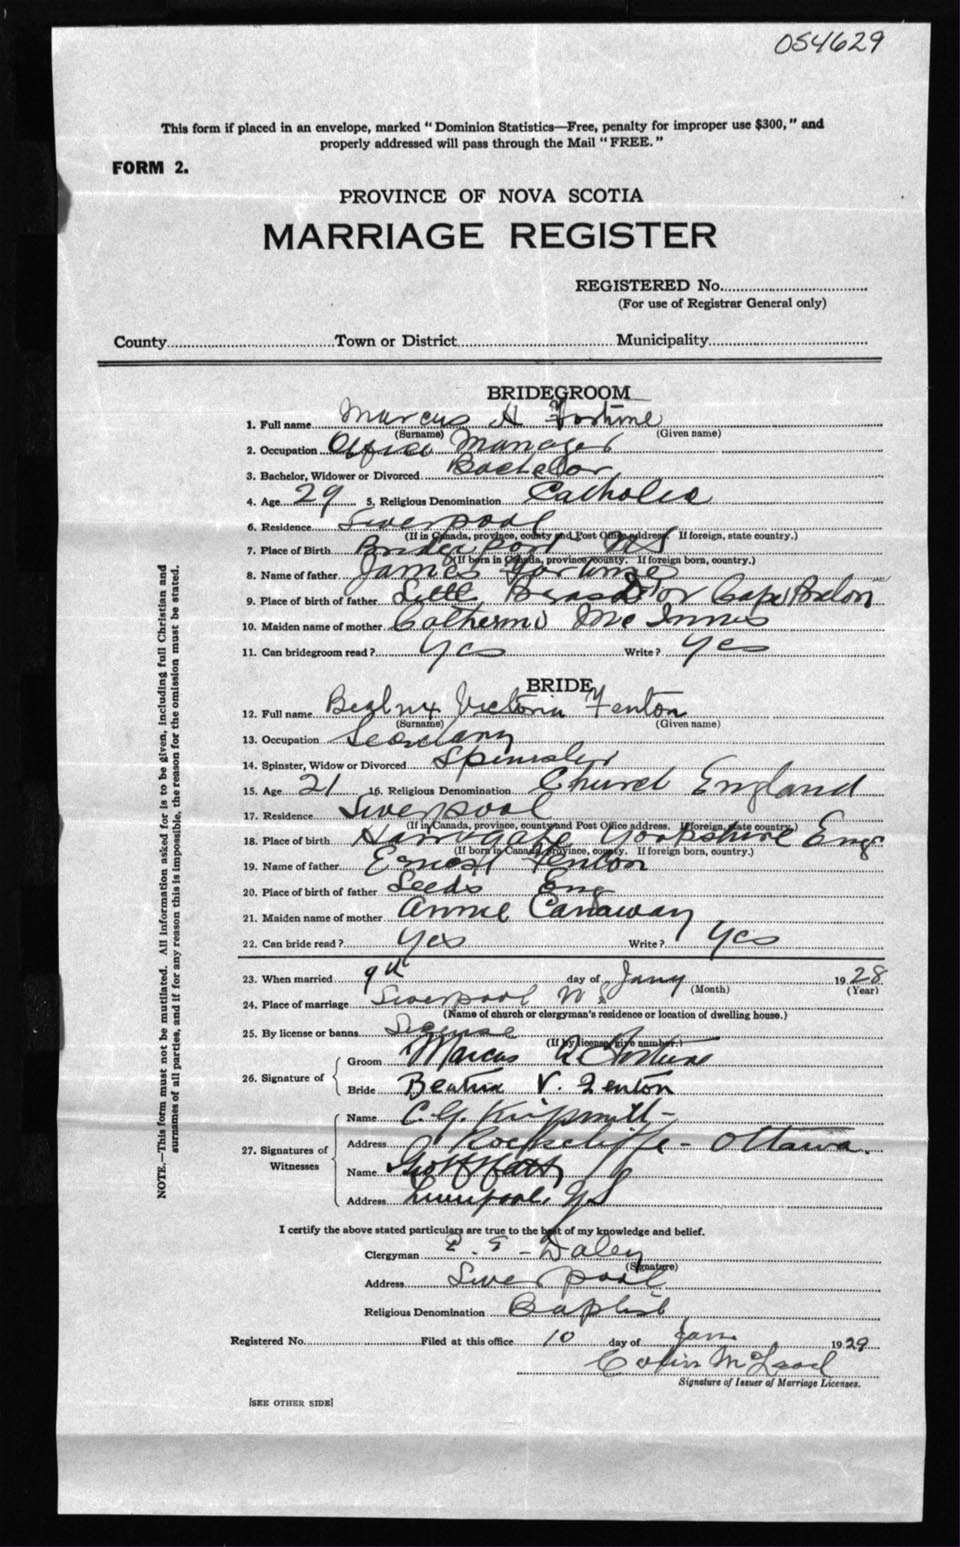 054629
This form if placed in an envelope, marked "Dominion Statistics—Free, penalty for improper use $300," and
properly addressed will pass through the Mail "FREE."
FORM 2.
PROVINCE OF NOVA SCOTIA
MARRIAGE REGISTER
REGISTERED No.
(For use of Registrar General only)
County Town or District Municipality
BRIDEGROOM
1. Full name Marcus A Fortune
(Surname) (Given name)
2. Occupation Office Manager
3. Bachelor, Widower or Divorced Bachelor
4. Age 29 5. Religious Denomination Catholic
6. Residence Liverpool
(If in Canada, province, county and Post Office address. If foreign, state country.)
7. Place of Birth Bridgeport NS
(If born in Canada, province, county. If foreign born, country.)
8. Name of father James Fortune
9. Place of birth of father Little Bras D'or Cape Breton
10. Maiden name of mother Catherine Mc Innis
11. Can bridegroom read? Yes Write? Yes
BRIDE
12. Full name Beatrix Victoria Fenton
(Surname) (Given name)
13. Occupation Secretary
14. Spinster, Widow or Divorced Spinster
15. Age 21 16. Religious Denomination Church England
17. Residence Liverpool
(If in Canada, province, county and Post Office address. If foreign, state country.)
18. Place of birth Harrogate Yorkshire Eng
(If born in Canada, province, county. If foreign born, country.)
19. Name of father Ernest Fenton
20. Place of birth of father Leeds Eng
21. Maiden name of mother Annie Canaway
22. Can bride read? Yes Write? Yes
23. When married 9th day of Jany 1928
(Month) (Year)
24. Place of marriage Liverpool N S
(Name of church or clergyman's residence or location of dwelling house.)
25. By license or banns License
(If by license, give number.)
26. Signature of
Groom Marcus A Fortune
Bride Beatrix V. Fenton
27. Signatures of Witnesses
Name C. G.
Address Rockcliffe - Ottawa.
Name
Address Liverpool, NS
I certify the above stated particulars are true to the best of my knowledge and belief.
Clergyman E. E. Daley
(Signature)
Address Liverpool
Religious Denomination Baptist
Registered No. Filed at this office 10 day of Jan 1929
Colin McLeod
Signature of Issuer of Marriage Licenses.
[SEE OTHER SIDE]
NOTE.—This form must not be mutilated. All information asked for is to be given, including full Christian and
surnames of all parties, and if for any reason this is impossible, the reason for the omission must be stated.